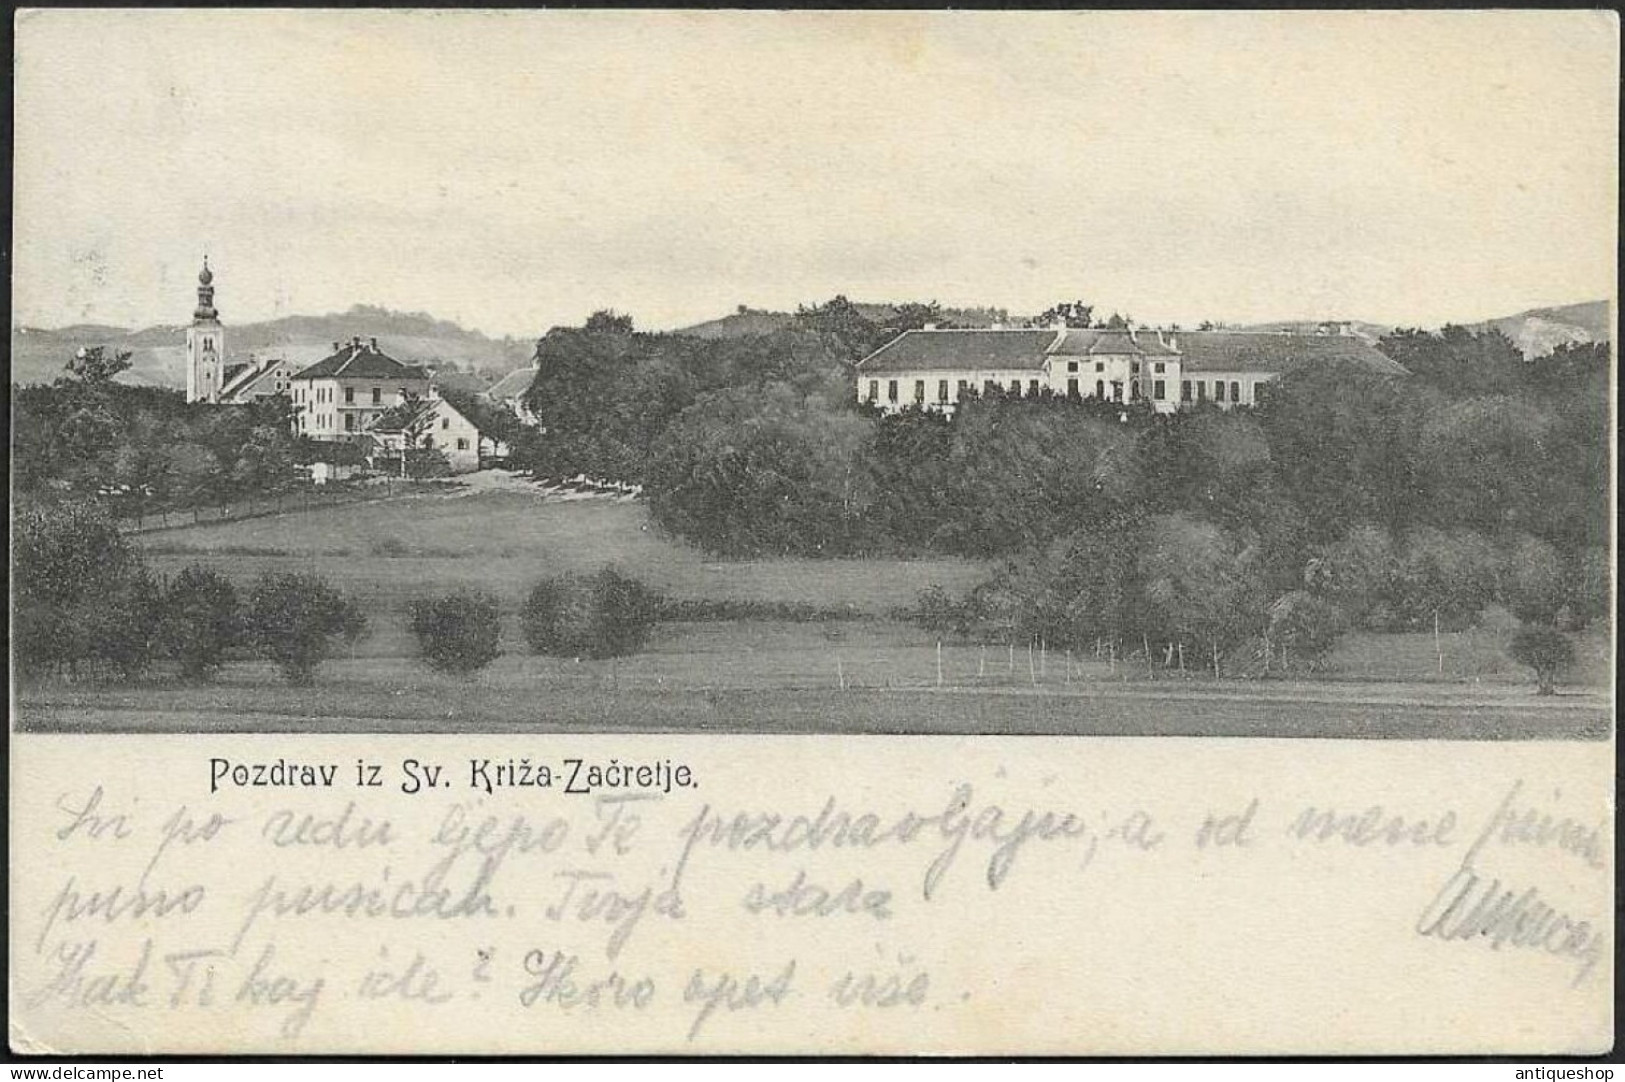 Pozdrav iz Sv. Križa-Začretje.
Svi po redu ljepo Te pozdravljaju, a od mene primi
puno pusicah. Tvoja stara
Kak Ti kaj ide? Skoro opet više.
www.delcampe.net
antiqueshop